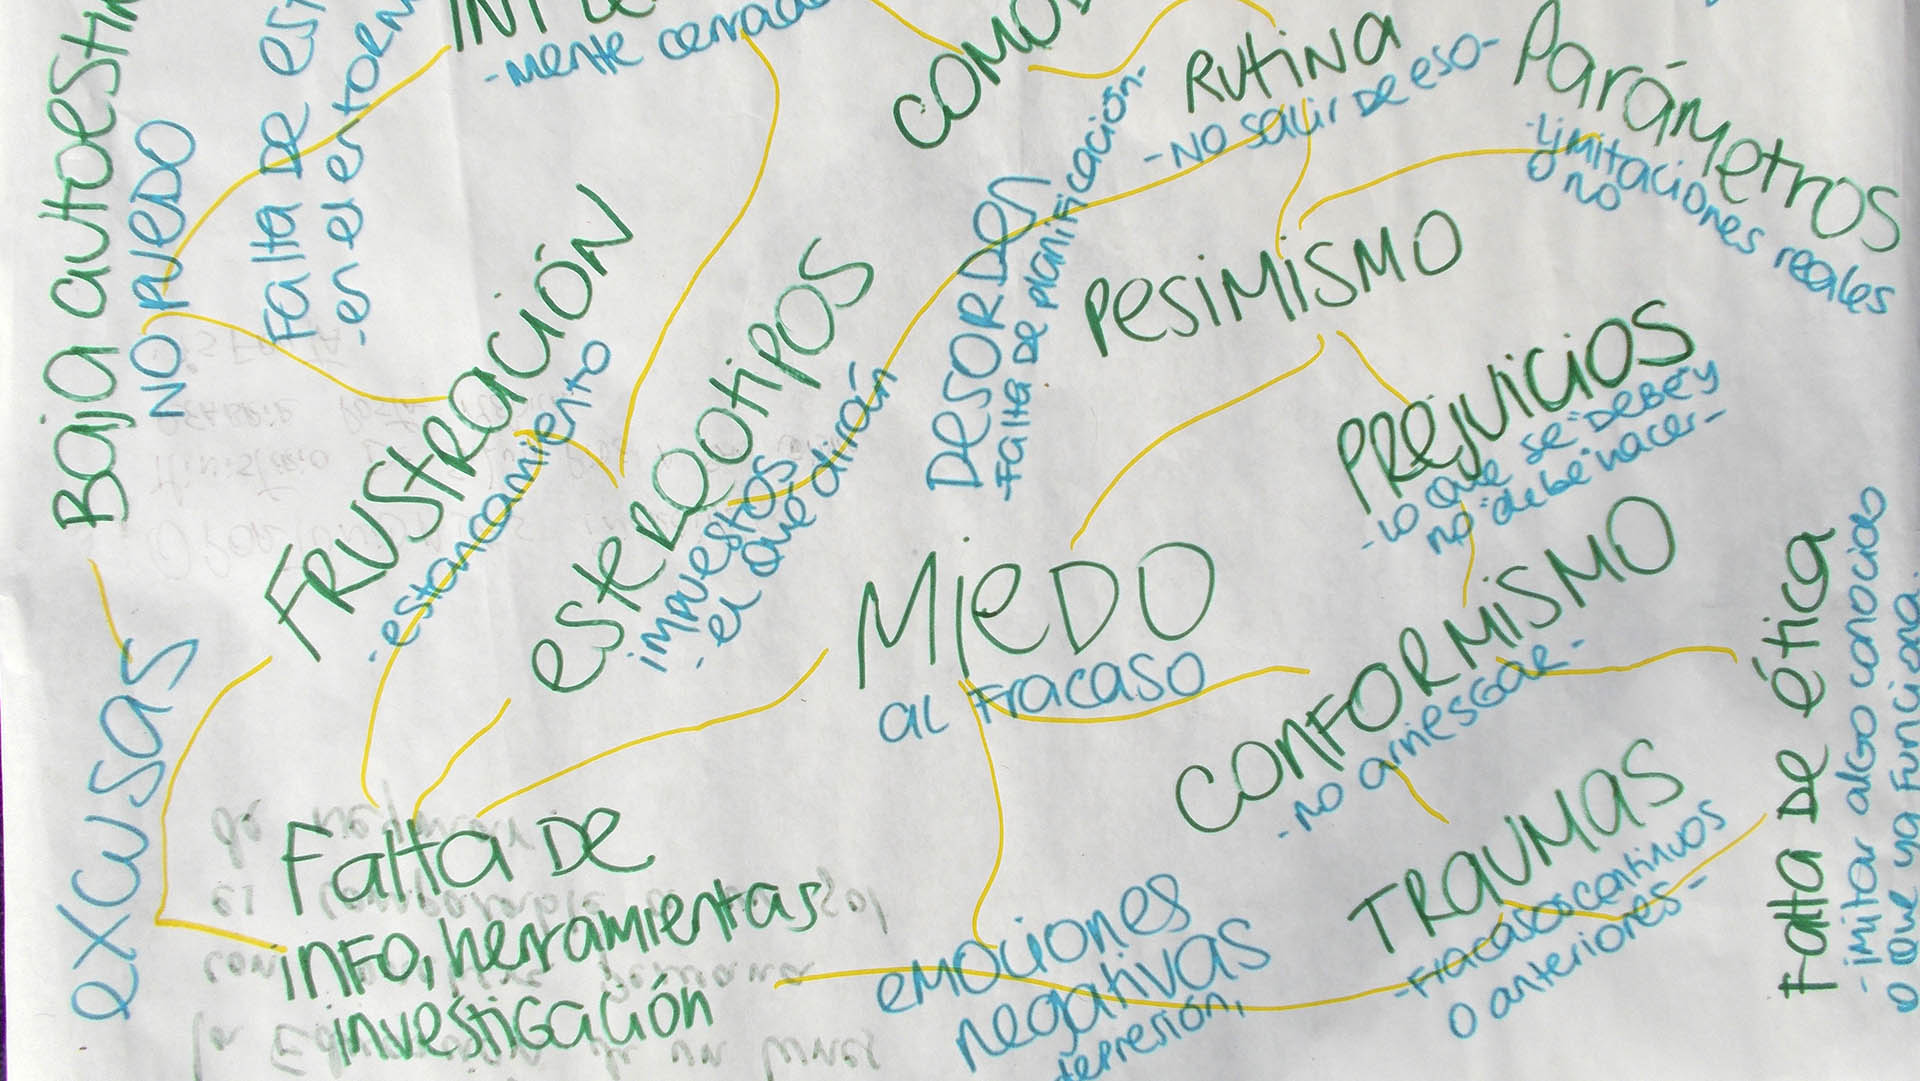 Baja
NO PUEDO
Falta DE
-en el
-mente cerrada
RUTINA
-NO salir DE eso-
Parámetros
-Limitaciones reales
O NO
DESORDEN
-Falta DE planificación-
PESIMISMO
FRUSTRACIÓN
-estancamiento
esteREOtipos
impuestos
-el qué dirán
PREJUICIOS
-lo que se "DEBE" y
no "debe" hacer-
MIEDO
al Fracaso
CONFORMISMO
-no arriesgar-
Falta DE ética
-imitar algo conocido
o que ya funciona.
excusas
Falta DE
INFO, herramientas
investigación
emociones
negativas
depresión,
TRAUMAS
-Fracasos continuos
O anteriores-